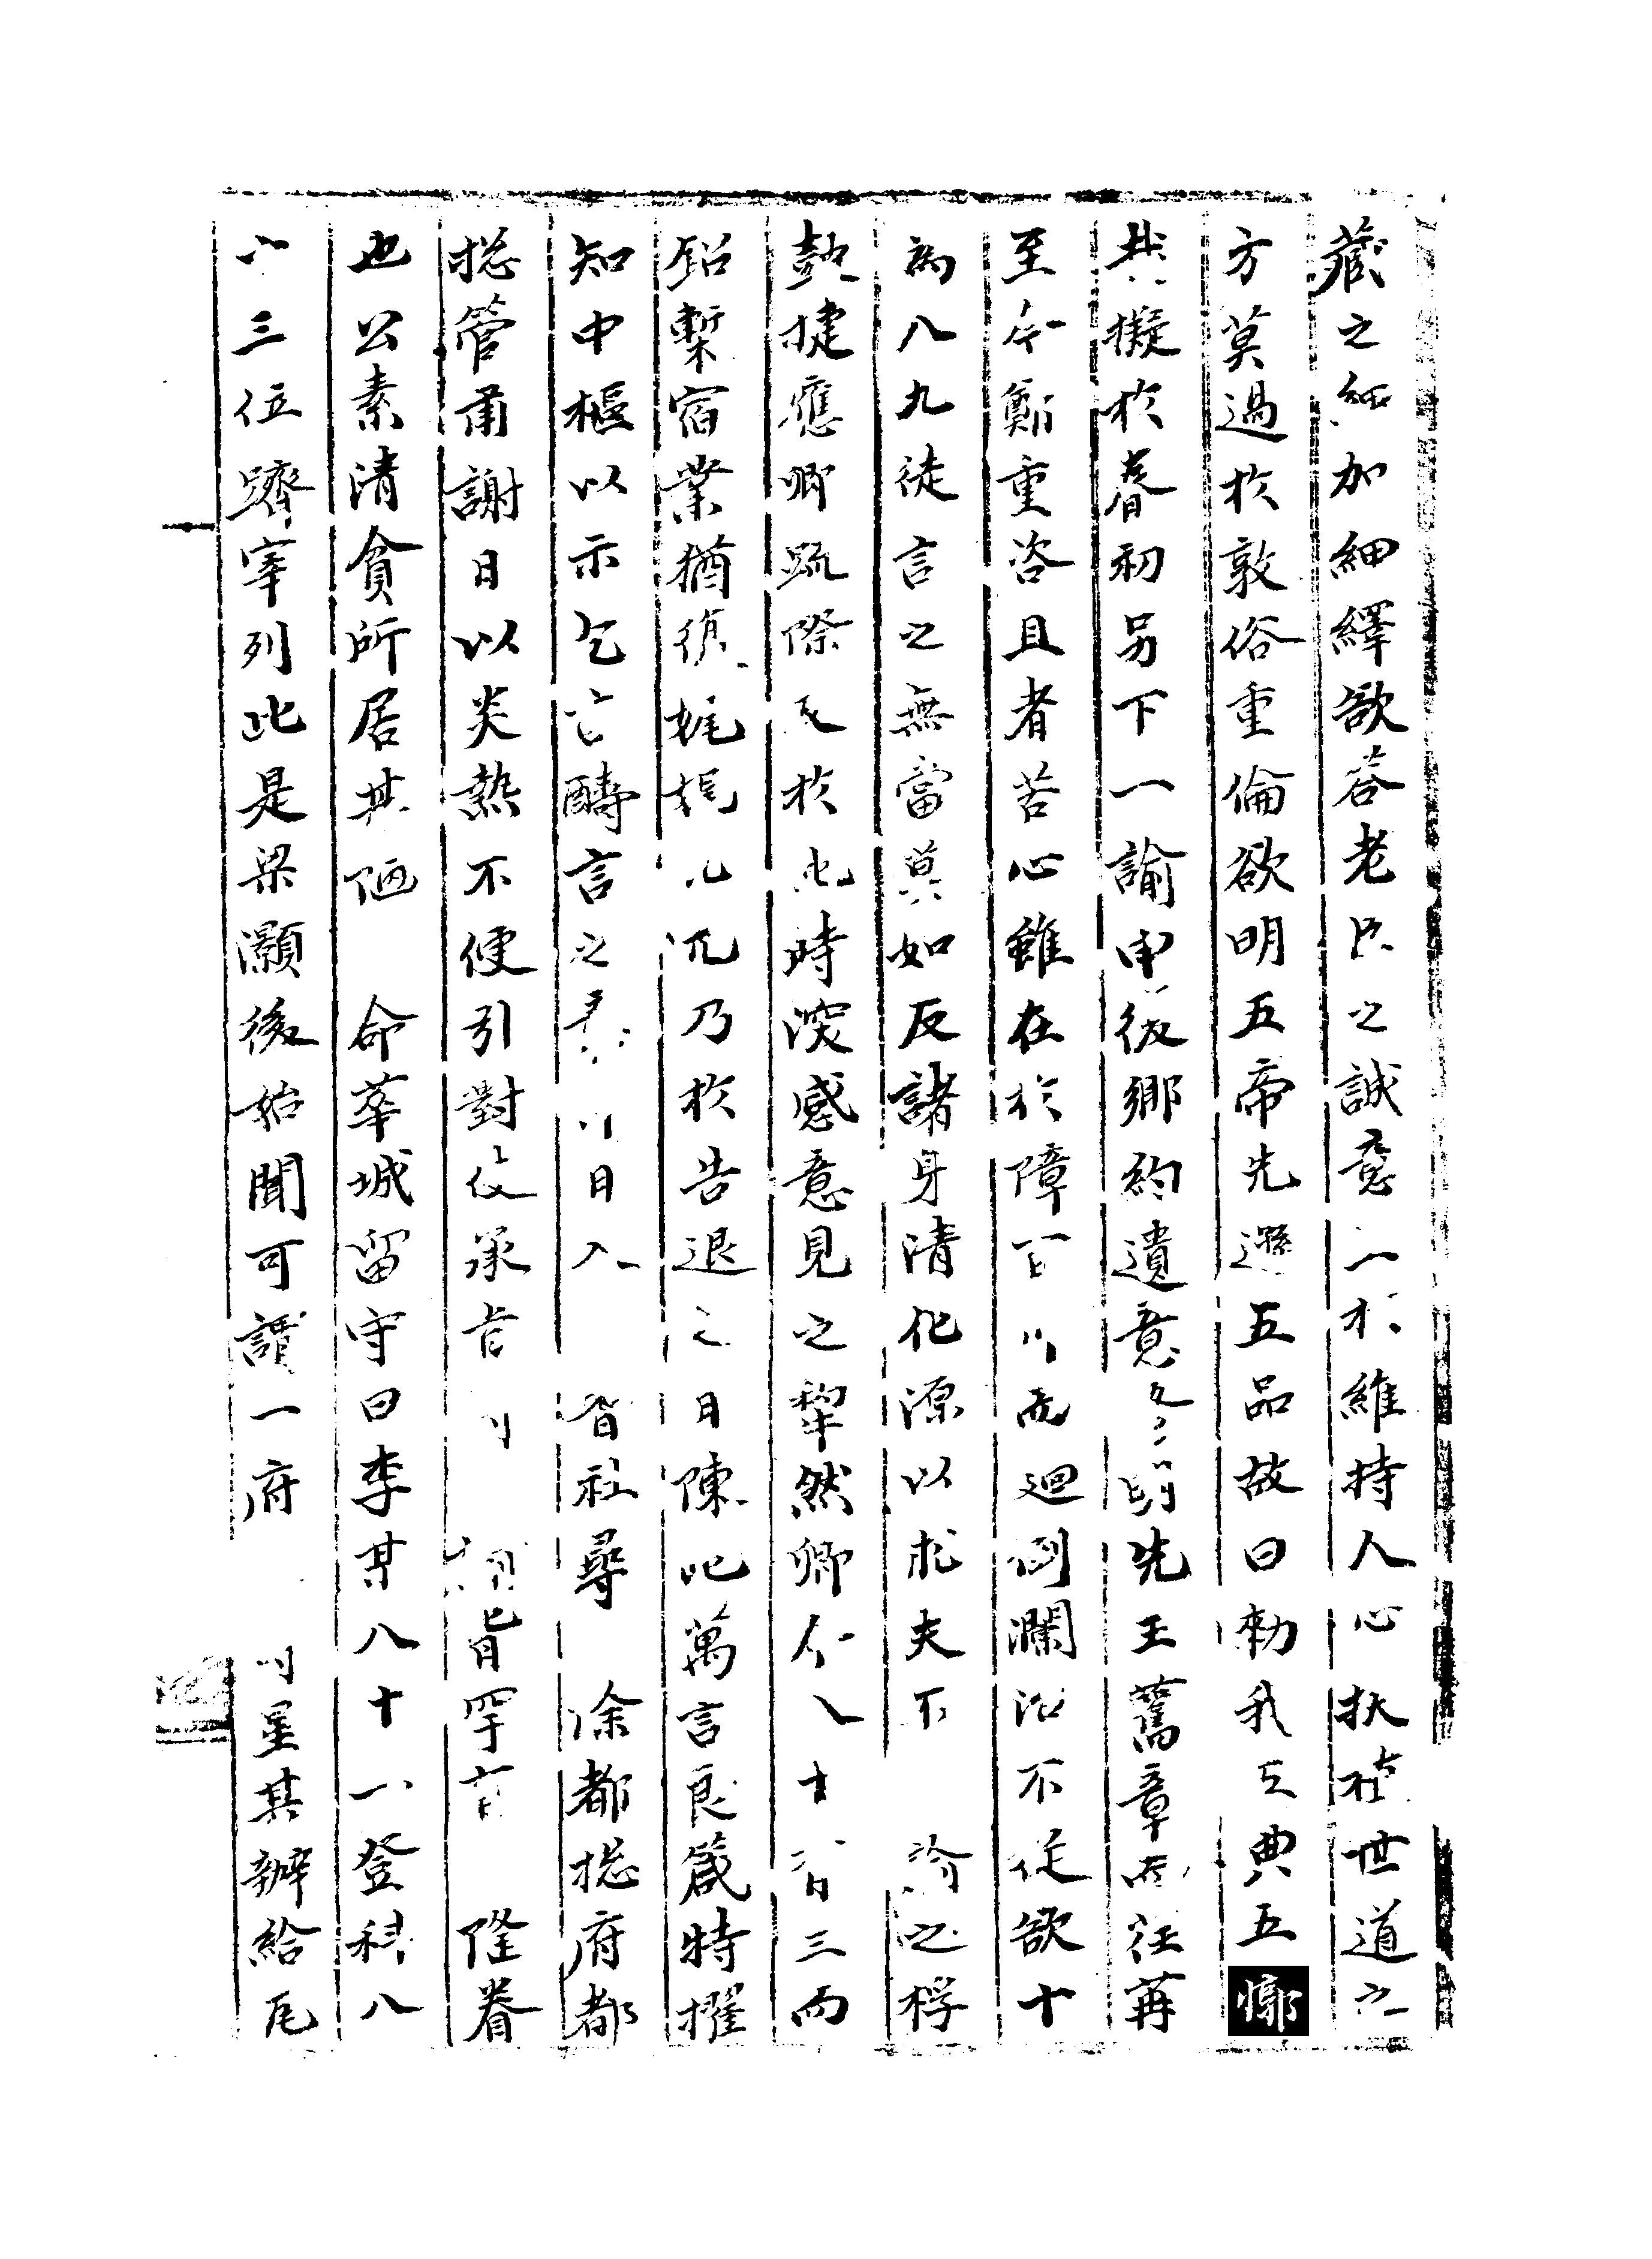 藏之細加紬繹欲答老臣之誠意一於維持人心扶植世道之
方莫過於敦俗重倫欲明五帝先遜五品故曰勑我五典五惇
其擬於春初另下一諭申復鄉約遺意又明先王舊章而荏苒
至今鄭重咨且者苦心雖在於障百川而迴倒瀾沿不從欲十
為八九徒言之無當莫如反諸身清化源以求夫不諭之桴
鼓捷應卿疏際又於此時深感意見之犂然卿今八十有三而
鉛槧宿業猶復娓娓兀兀乃於告退之日陳此萬言良箴特擢
知中樞以示乞言酬言之日入耆社尋除都摠府都
摠管甫謝日以炎熱不便引對使承旨旨罕旨隆眷
也公素清貧所居甚陋命華城留守曰李某八十一登科八
十三位躋宰列此是梁灝後始聞可謂一府星其辦給瓦